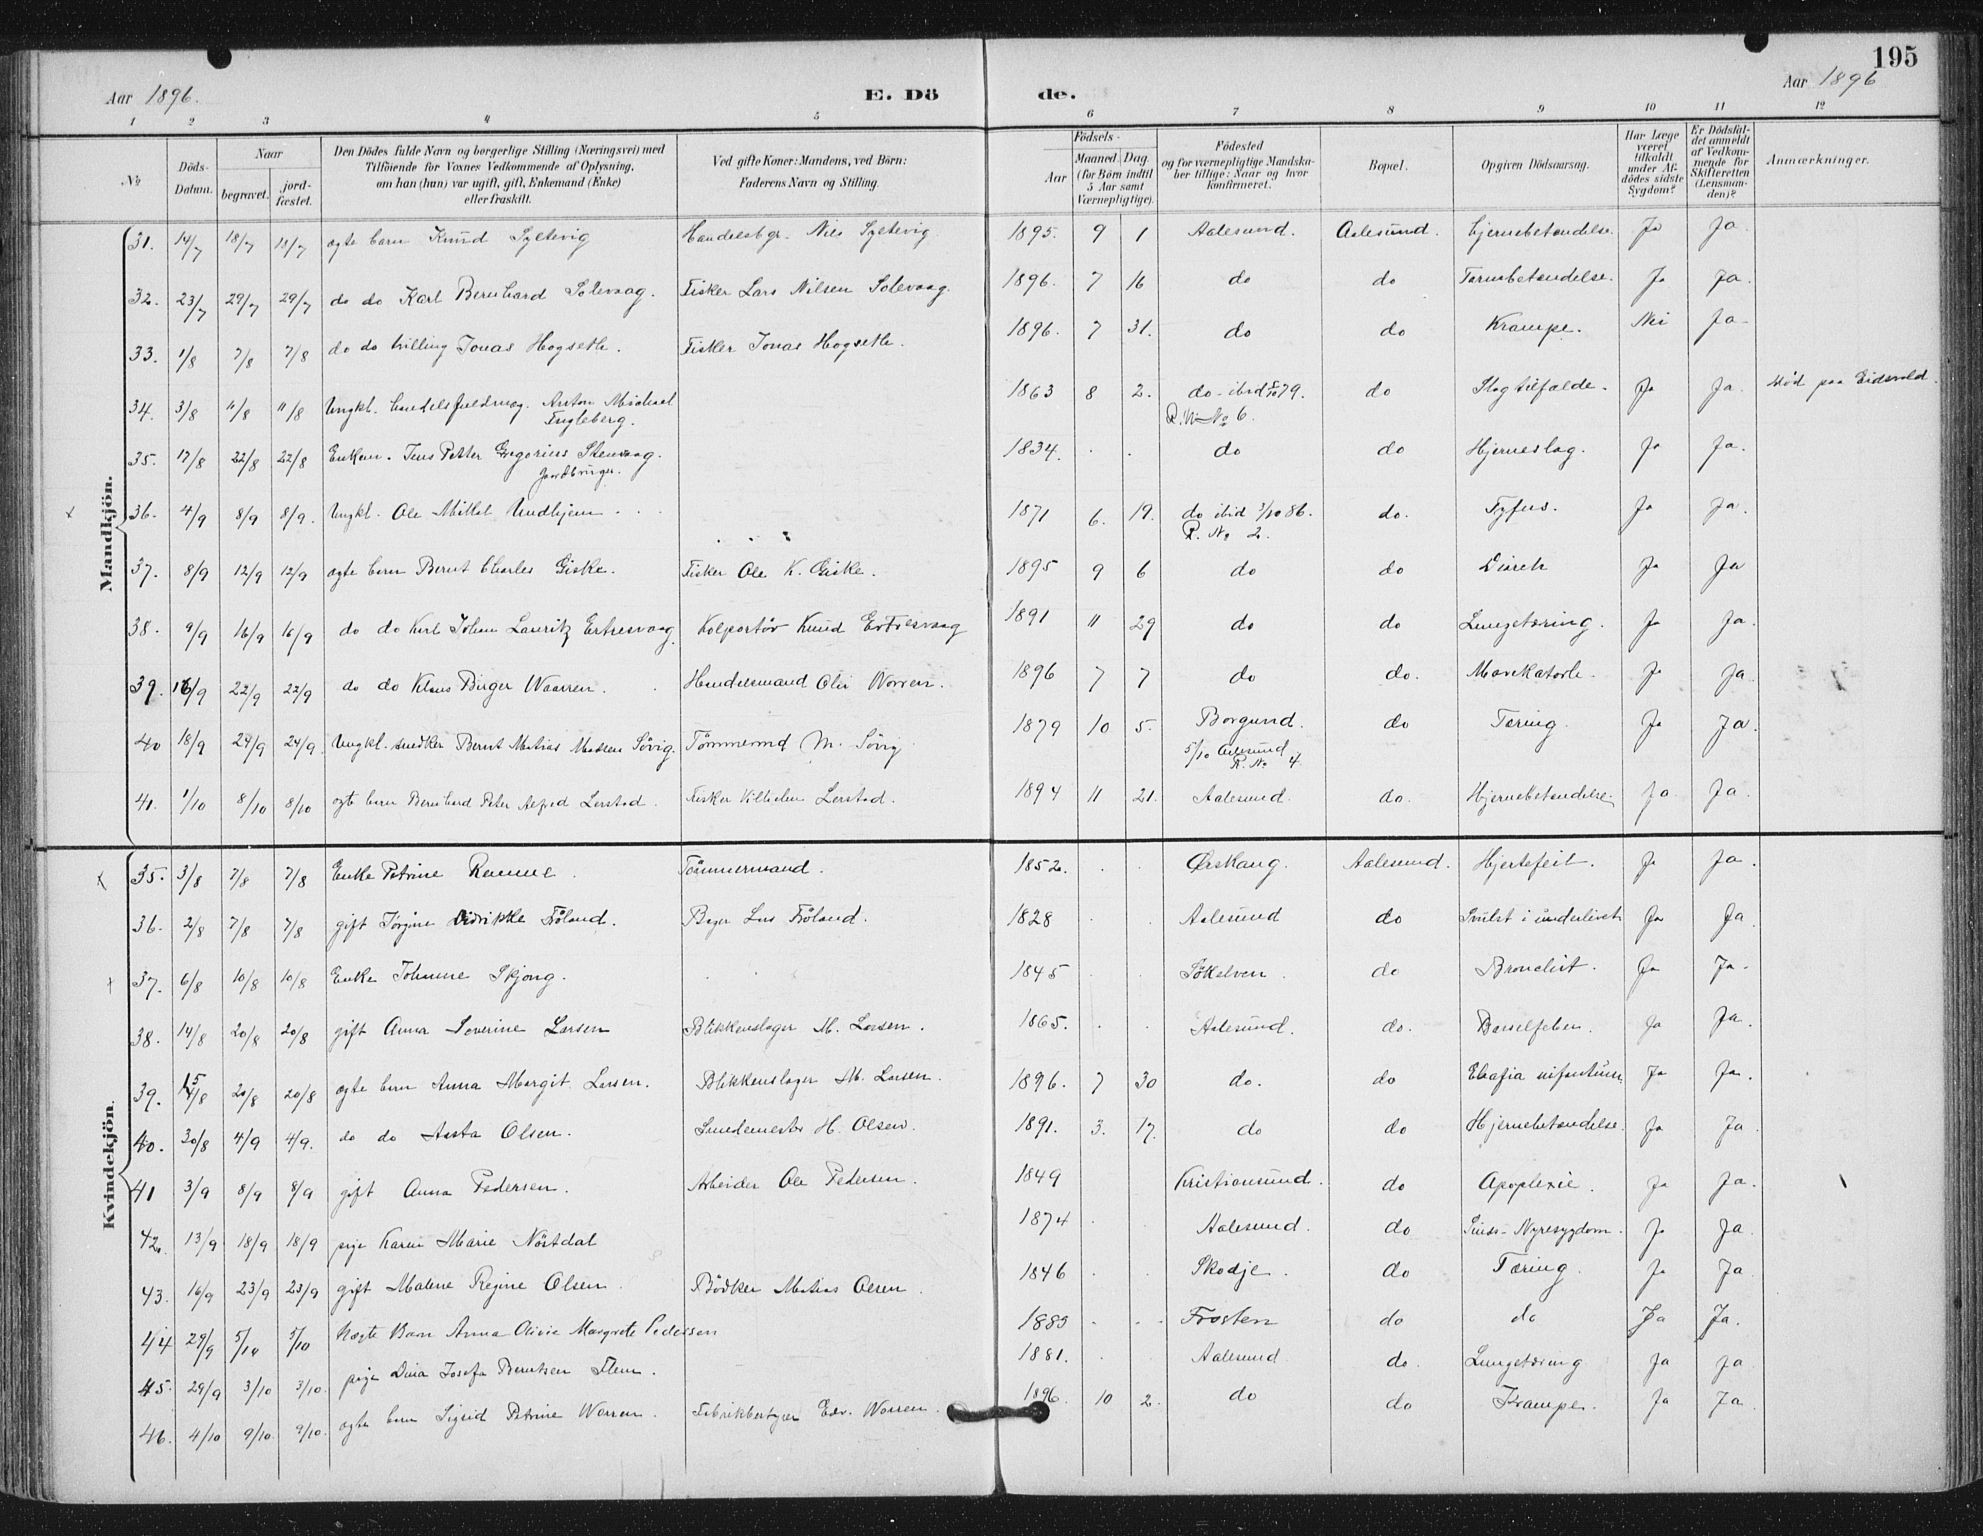 195
Aar 1896.
E. Dö de.
Aar 1896
1 2 3 4 5 6 7 8 9 10 11 12
No.
Döds-Datum.
Naar
begravet.
jord-fæstet.
Den Dödes fulde Navn og borgerlige Stilling (Næringsvei) med
Tilföiende for Voxnes Vedkommende af Oplysning,
om han (hun) var ugift, gift, Enkemand (Enke)
eller fraskilt.
Ved gifte Koner: Mandens, ved Börn:
Faderens Navn og Stilling.
Födsels-
Aar
Maaned Dag.
(for Börn indtil
5 Aar samt
Værnepligtige).
Födested
og for værnepligtige Mandska-
ber tillige: Naar og hvor
konfirmeret.
Bopæl.
Opgiven Dödsaarsag.
Har Læge
været
tilkaldt
under Af-
dödes sidste
Sygdom?
Er Dödsfal-
det anmeldt
af Vedkom-
mende for
Skifteretten
(Lensman-
den)?
Anmærkninger.
Mandkjön.
31. 14/7 18/7 18/7 ægte barn Knud Syltevig Handelsbgr. Nils Syltevig 1895. 9 1 Aalesund. Aalesund. Hjernebetændelse. Ja Ja.
32. 23/7 29/7 29/7 do do Karl Bernhard Solevaag. Fisker Lars Nilsen Solevaag. 1896. 7 16 do do Tarmbetændelse. Ja Ja.
33. 1/8 7/8 7/8 do do tvilling Jonas Hogseth. Fisker Jonas Hogseth. 1896. 7 31. do do Krampe. Nei Ja
34. 3/8 11/8 11/8 Ungkl. handelsfuldmæg. Anton Michael Engleberg. 1863 8 2. do ibid 79. R. No 6. do Slagtilfælde. Ja Ja. död paa Eidsvold.
35. 17/8 22/8 22/8 Enkem. Jens Petter Gregorius Stenvaag. Jordbruger. 1834. do do Hjerneslag. Ja Ja.
36. 4/9 8/9 8/9. Ungkl. Ole Mikkel Undhjem 1871 6. 19. do ibid 3/10 86. R. No 2. do. Tyfus. Ja Ja.
37. 8/9 12/9 12/9 ægte barn Bernt Charles Giske. Fisker Ole K. Giske. 1895 9 6 do do Diareh Ja Ja
38. 9/9 16/9 16/9 do do Karl Johan Lauritz Ertresvaag Kolportör Knud Ertresvaag 1891 11 29 do do Lungetæring. Ja Ja.
39. 16/9 22/9 22/9 do do Klaus Birger Waarren. Handelsmand Olei Worren. 1896 7 7 do do. Mavekatarh. Ja Ja
40 18/9 24/9 24/9. Ungkl. snedker Bernt Matias Madsen Sövig. Tömmermd M. Sövig 1879 10 5. Borgund. 5/10 Aalesund R. No 4. do Tæring. Ja Ja.
41. 1/10 8/10 8/10 ægte barn Bernhard Peter Alfred Lerstad. Fisker Vilhelm Lerstad. 1894 11 21. Aalesund. do. Hjernebetændelse. Ja. Ja.
Kvindekjön.
35. 3/8 7/8 7/8 Enke Petrine Remme. Tömmermand. 1852. Örskaug. Aalesund. Hjertefeil. Ja Ja.
36. 2/8 7/8 7/8 gift Jörgine Didrikke Fröland. Bager Lars Fröland. 1828 Aalesund do Svulst i underlivet Ja Ja
37. 6/8 10/8 10/8 Enke Johanne Skjong. 1845 Sökelven do Bronchit. Ja Ja.
38. 14/8 20/8 20/8 gift Anna Soverine Larsen Blikkenslager M. Larsen. 1865. Aalesund. do. Barselfeber. Ja Ja.
39. 15/8 20/8 20/8 ægte barn Anna Margit Larsen. Blikkenslager M. Larsen. 1896. 7 30 do. do Ja Ja.
40. 30/8 4/9 4/9. do do Aasta Olsen. Smedemester H. Olsen. 1891. 3. 17. do do Hjernebetændelse. Ja Ja
41 3/9 8/9 8/9 gift Anna Pedersen. Arbeider Ole Pedersen. 1849 Kristiansund. do Apoplexie. Ja Ja.
42. 13/9 18/9 18/9 pige Karen Marie Nörtdal 1874 Aalesund. do Sinds-Nyresygdom. Ja Ja
43. 16/9 23/9 23/9 gift Malene Regine Olsen. Bödker Matias Olsen. 1846 Skodje. do Tæring. Ja Ja
44 29/9 5/10 5/10 Uægte Barn Anna Olivie Margrete Pedersen 1885 Frosten do do Ja Ja.
45. 29/9 3/10 3/10. pige Dina Josefa Berntsen Flem. 1881. Aalesund do. Lungetæring Ja Ja
46. 4/10 9/10. 9/10. ægte barn Sigrid Petrine Worren. Fabrikbestyrer Edv. Worren. 1896. 10 2. do do Krampe. Ja Ja.